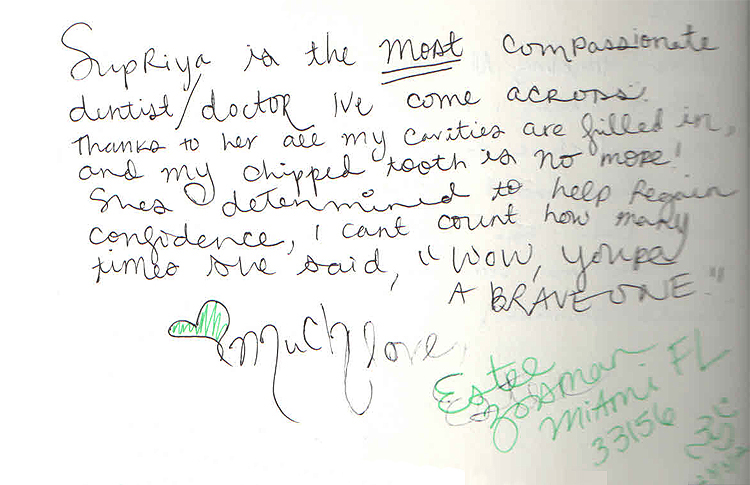 Supriya is the most compassionate
dentist/doctor Ive come across.
Thanks to her all my cavities are filled in,
and my chipped tooth is no more!
Shes determined to help Regain
confidence, I cant count how many
times she said, "Wow, you're
A BRAVE ONE."
much love,
Estee
Zosman
Miami FL
33156